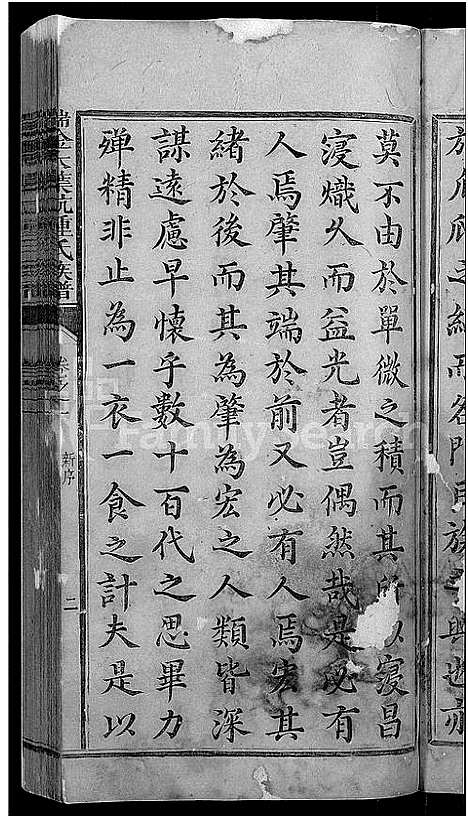 於瓜瓞之綿而名門巨族之興也亦
莫不由於單微之積而其所以寖昌
寖熾久而益光者豈偶然哉是必有
人焉肇其端於前又必有人焉宏其
緒於後而其為肇為宏之人類皆深
謀遠慮早懷乎數十百代之思畢力
殫精非止為一衣一食之計夫是以
瑞金 鍾氏族譜
卷之
新序
二
FamilySearch